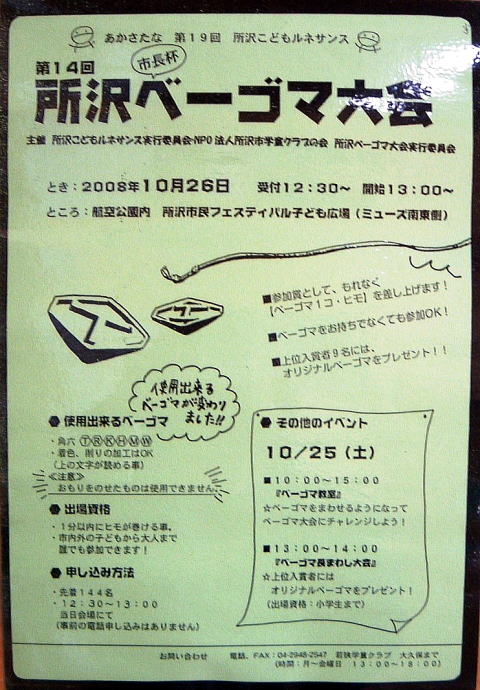 あかさたな 第19回 所沢こどもルネサンス
市長杯
第14回
所沢ベーゴマ大会
主催 所沢こどもルネサンス実行委員会・NPO法人所沢市学童クラブの会 所沢ベーゴマ大会実行委員会
とき：2008年10月26日 受付12：30〜 開始13：00〜
ところ：航空公園内 所沢市民フェスティバル子ども広場（ミューズ南東側）
■参加賞として、もれなく
【ベーゴマ1コ・ヒモ】を差し上げます！
■ベーゴマをお持ちでなくても参加OK！
■上位入賞者9名には、
オリジナルベーゴマをプレゼント！！
使用出来る
ベーゴマが変わり
ました!!
●使用出来るベーゴマ
・角六 ⓉⓇⓀⒽⓂⓌ
・着色、削りの加工はOK
（上の文字が読める事）
≪注意≫
おもりをのせたものは使用できません。
●出場資格
・1分以内にヒモが巻ける事。
・市内外の子どもから大人まで
誰でも参加できます！
●申し込み方法
・先着144名
・12：30〜13：00
当日会場にて
（事前の電話申し込みはありません）
●その他のイベント
10／25（土）
■10：00〜15：00
『ベーゴマ教室』
☆ベーゴマをまわせるようになって
ベーゴマ大会にチャレンジしよう！
■13：00〜14：00
『ベーゴマ長まわし大会』
☆上位入賞者には
オリジナルベーゴマをプレゼント！
（出場資格：小学生まで）
お問い合わせ 電話、FAX：04-2948-2547 若狭学童クラブ 大久保まで
（時間：月〜金曜日 13：00〜18：00）